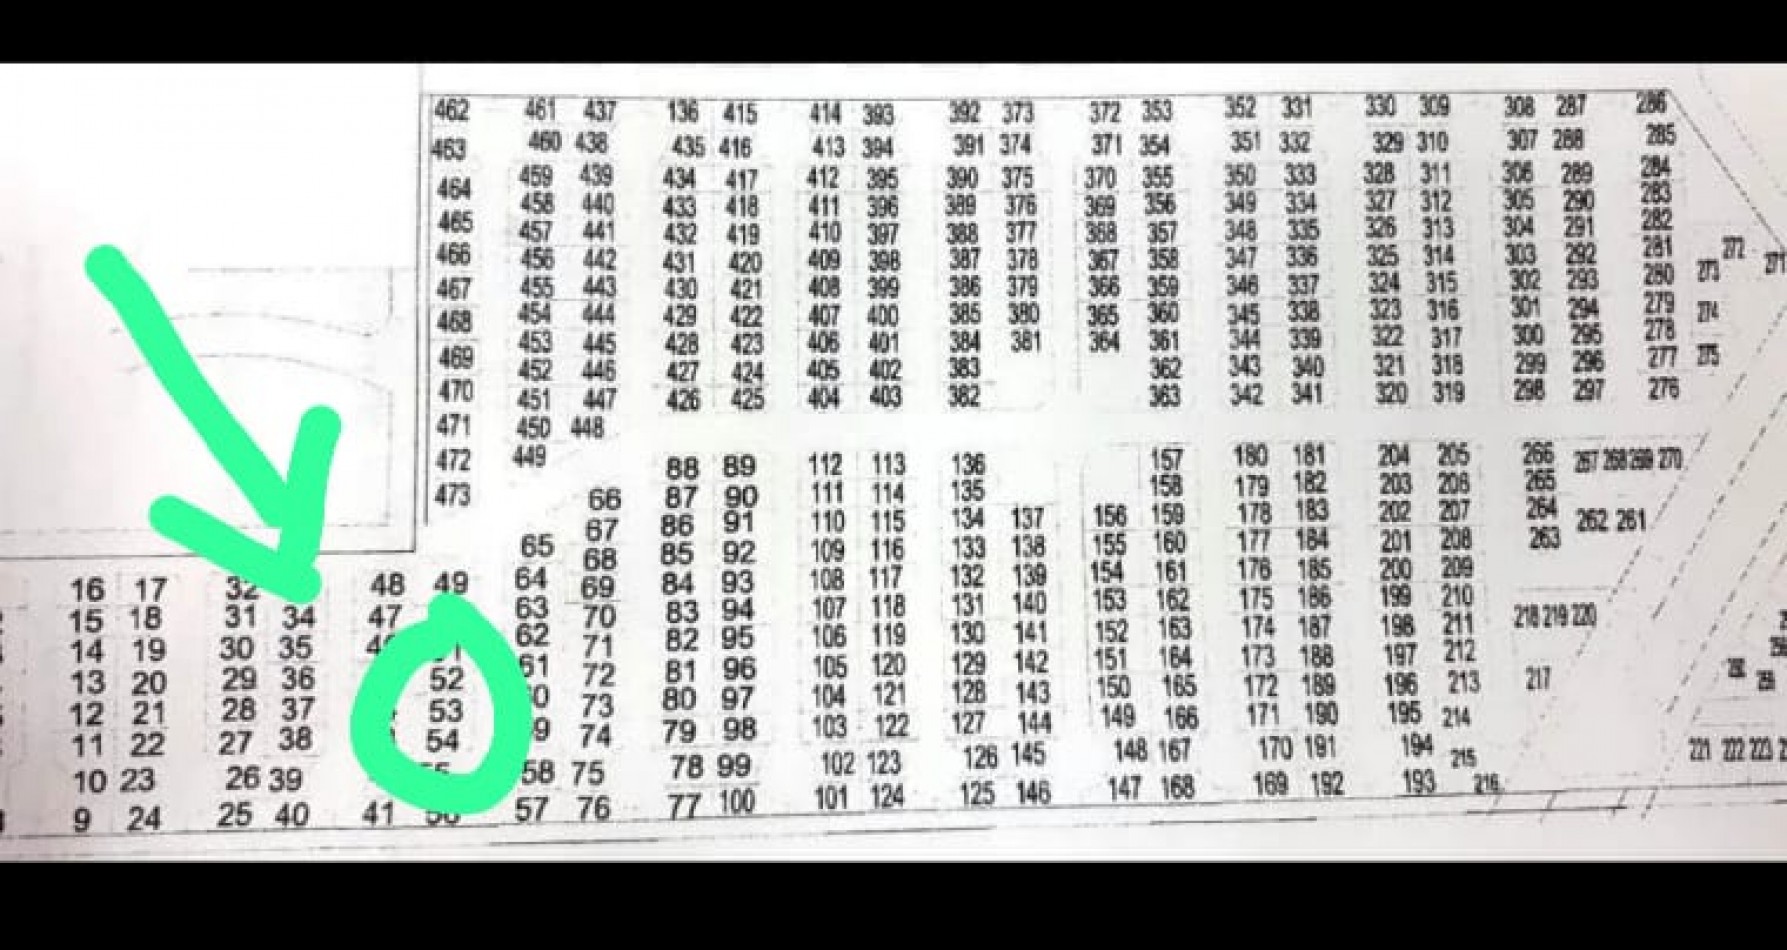 462 461 437 136 415 414 393 392 373 372 353 352 331 330 309 308 287 286
463 460 438 435 416 413 394 391 374 371 354 351 332 329 310 307 288 285
464 459 439 434 417 412 395 390 375 370 355 350 333 328 311 306 289 284
458 440 433 418 411 396 389 376 369 356 349 334 327 312 305 290 283
465 457 441 432 419 410 397 388 377 368 357 348 335 326 313 304 291 282
466 456 442 431 420 409 398 387 378 367 358 347 336 325 314 303 292 281 272 271
467 455 443 430 421 408 399 386 379 366 359 346 337 324 315 302 293 280 273
468 454 444 429 422 407 400 385 380 365 360 345 338 323 316 301 294 279 274
453 445 428 423 406 401 384 381 364 361 344 339 322 317 300 295 278
469 452 446 427 424 405 402 383 362 343 340 321 318 299 296 277 275
470 451 447 426 425 404 403 382 363 342 341 320 319 298 297 276
471 450 448
472 449 88 89 112 113 136 157 180 181 204 205 266 267 268 269 270
473 66 87 90 111 114 135 158 179 182 203 206 265
67 86 91 110 115 134 137 156 159 178 183 202 207 264 262 261
65 68 85 92 109 116 133 138 155 160 177 184 201 208 263
16 17 32 48 49 64 69 84 93 108 117 132 139 154 161 176 185 200 209
15 18 31 34 47 63 70 83 94 107 118 131 140 153 162 175 186 199 210 218 219 220
14 19 30 35 62 71 82 95 106 119 130 141 152 163 174 187 198 211
13 20 29 36 52 61 72 81 96 105 120 129 142 151 164 173 188 197 212
12 21 28 37 53 73 80 97 104 121 128 143 150 165 172 189 196 213 217
11 22 27 38 54 74 79 98 103 122 127 144 149 166 171 190 195 214
10 23 26 39 58 75 78 99 102 123 126 145 148 167 170 191 194 215 221 222 223
9 24 25 40 41 57 76 77 100 101 124 125 146 147 168 169 192 193 216